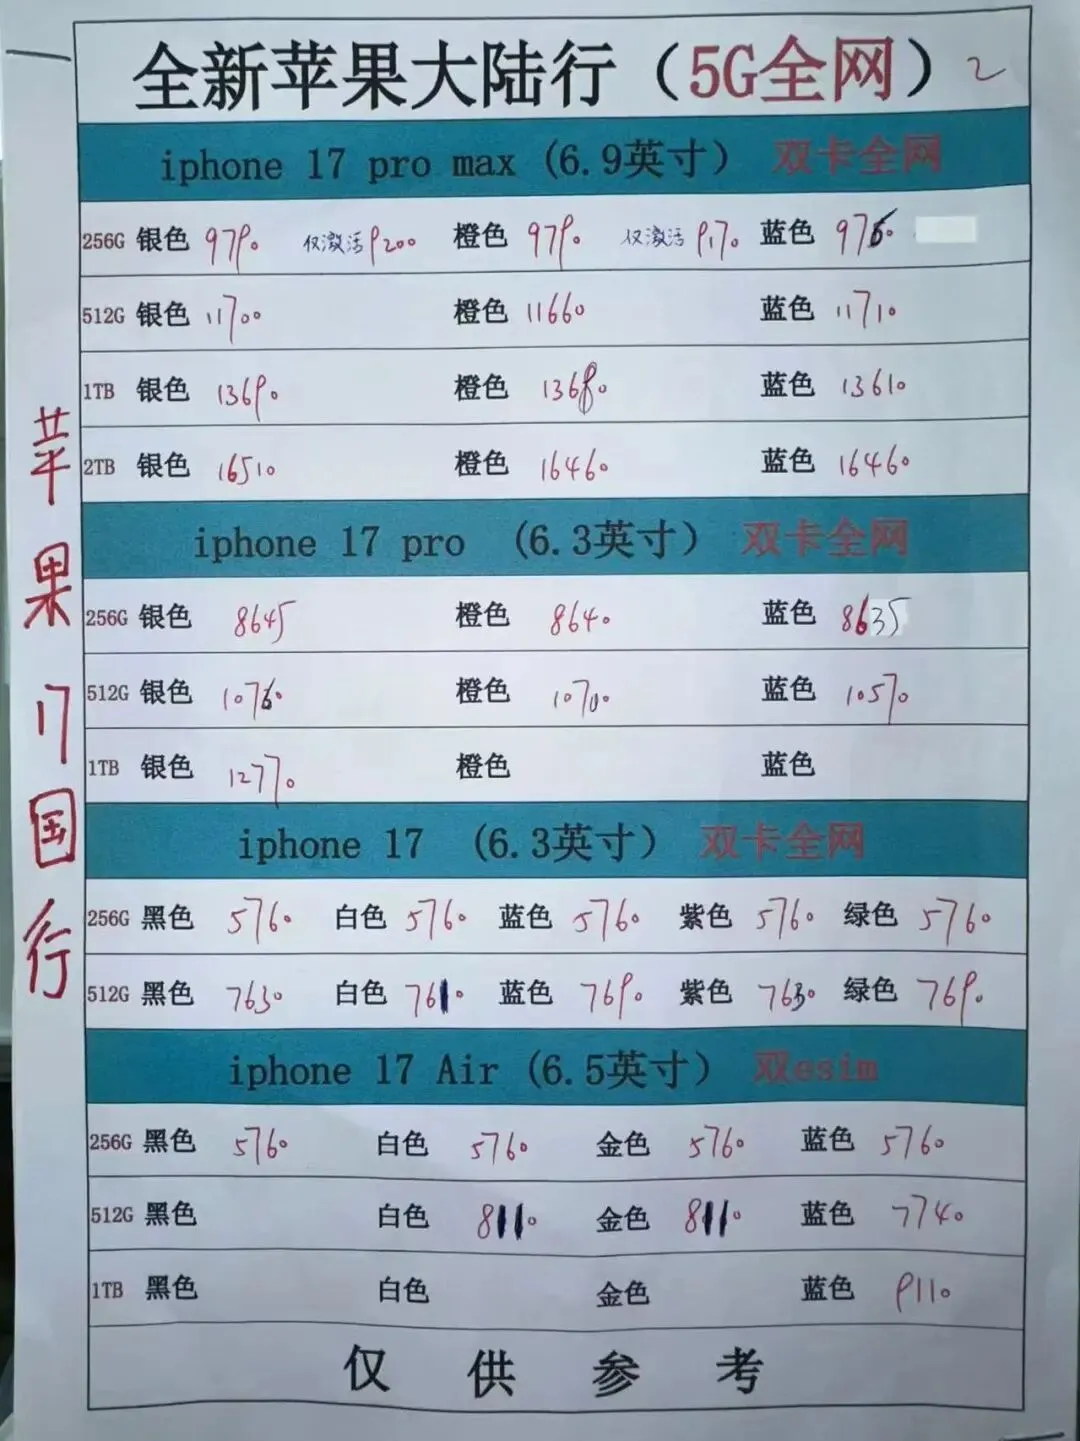 全新苹果大陆行（5G全网）2
iphone 17 pro max (6.9英寸） 双卡全网
256G 银色 9790 仅激活9200 橙色 9790 仅激活9170 蓝色 9760
512G 银色 11700 橙色 11660 蓝色 11710
1TB 银色 13690 橙色 13690 蓝色 13610
2TB 银色 16510 橙色 16460 蓝色 16460
iphone 17 pro (6.3英寸） 双卡全网
256G 银色 8645 橙色 8640 蓝色 8635
512G 银色 10760 橙色 10700 蓝色 10570
1TB 银色 12770 橙色 蓝色
iphone 17 (6.3英寸） 双卡全网
256G 黑色 5760 白色 5760 蓝色 5760 紫色 5760 绿色 5760
512G 黑色 7630 白色 7610 蓝色 7690 紫色 7630 绿色 7690
iphone 17 Air (6.5英寸） 双esim
256G 黑色 5760 白色 5760 金色 5760 蓝色 5760
512G 黑色 白色 8110 金色 8110 蓝色 7740
1TB 黑色 白色 金色 蓝色 9110
仅供参考
苹果17国行